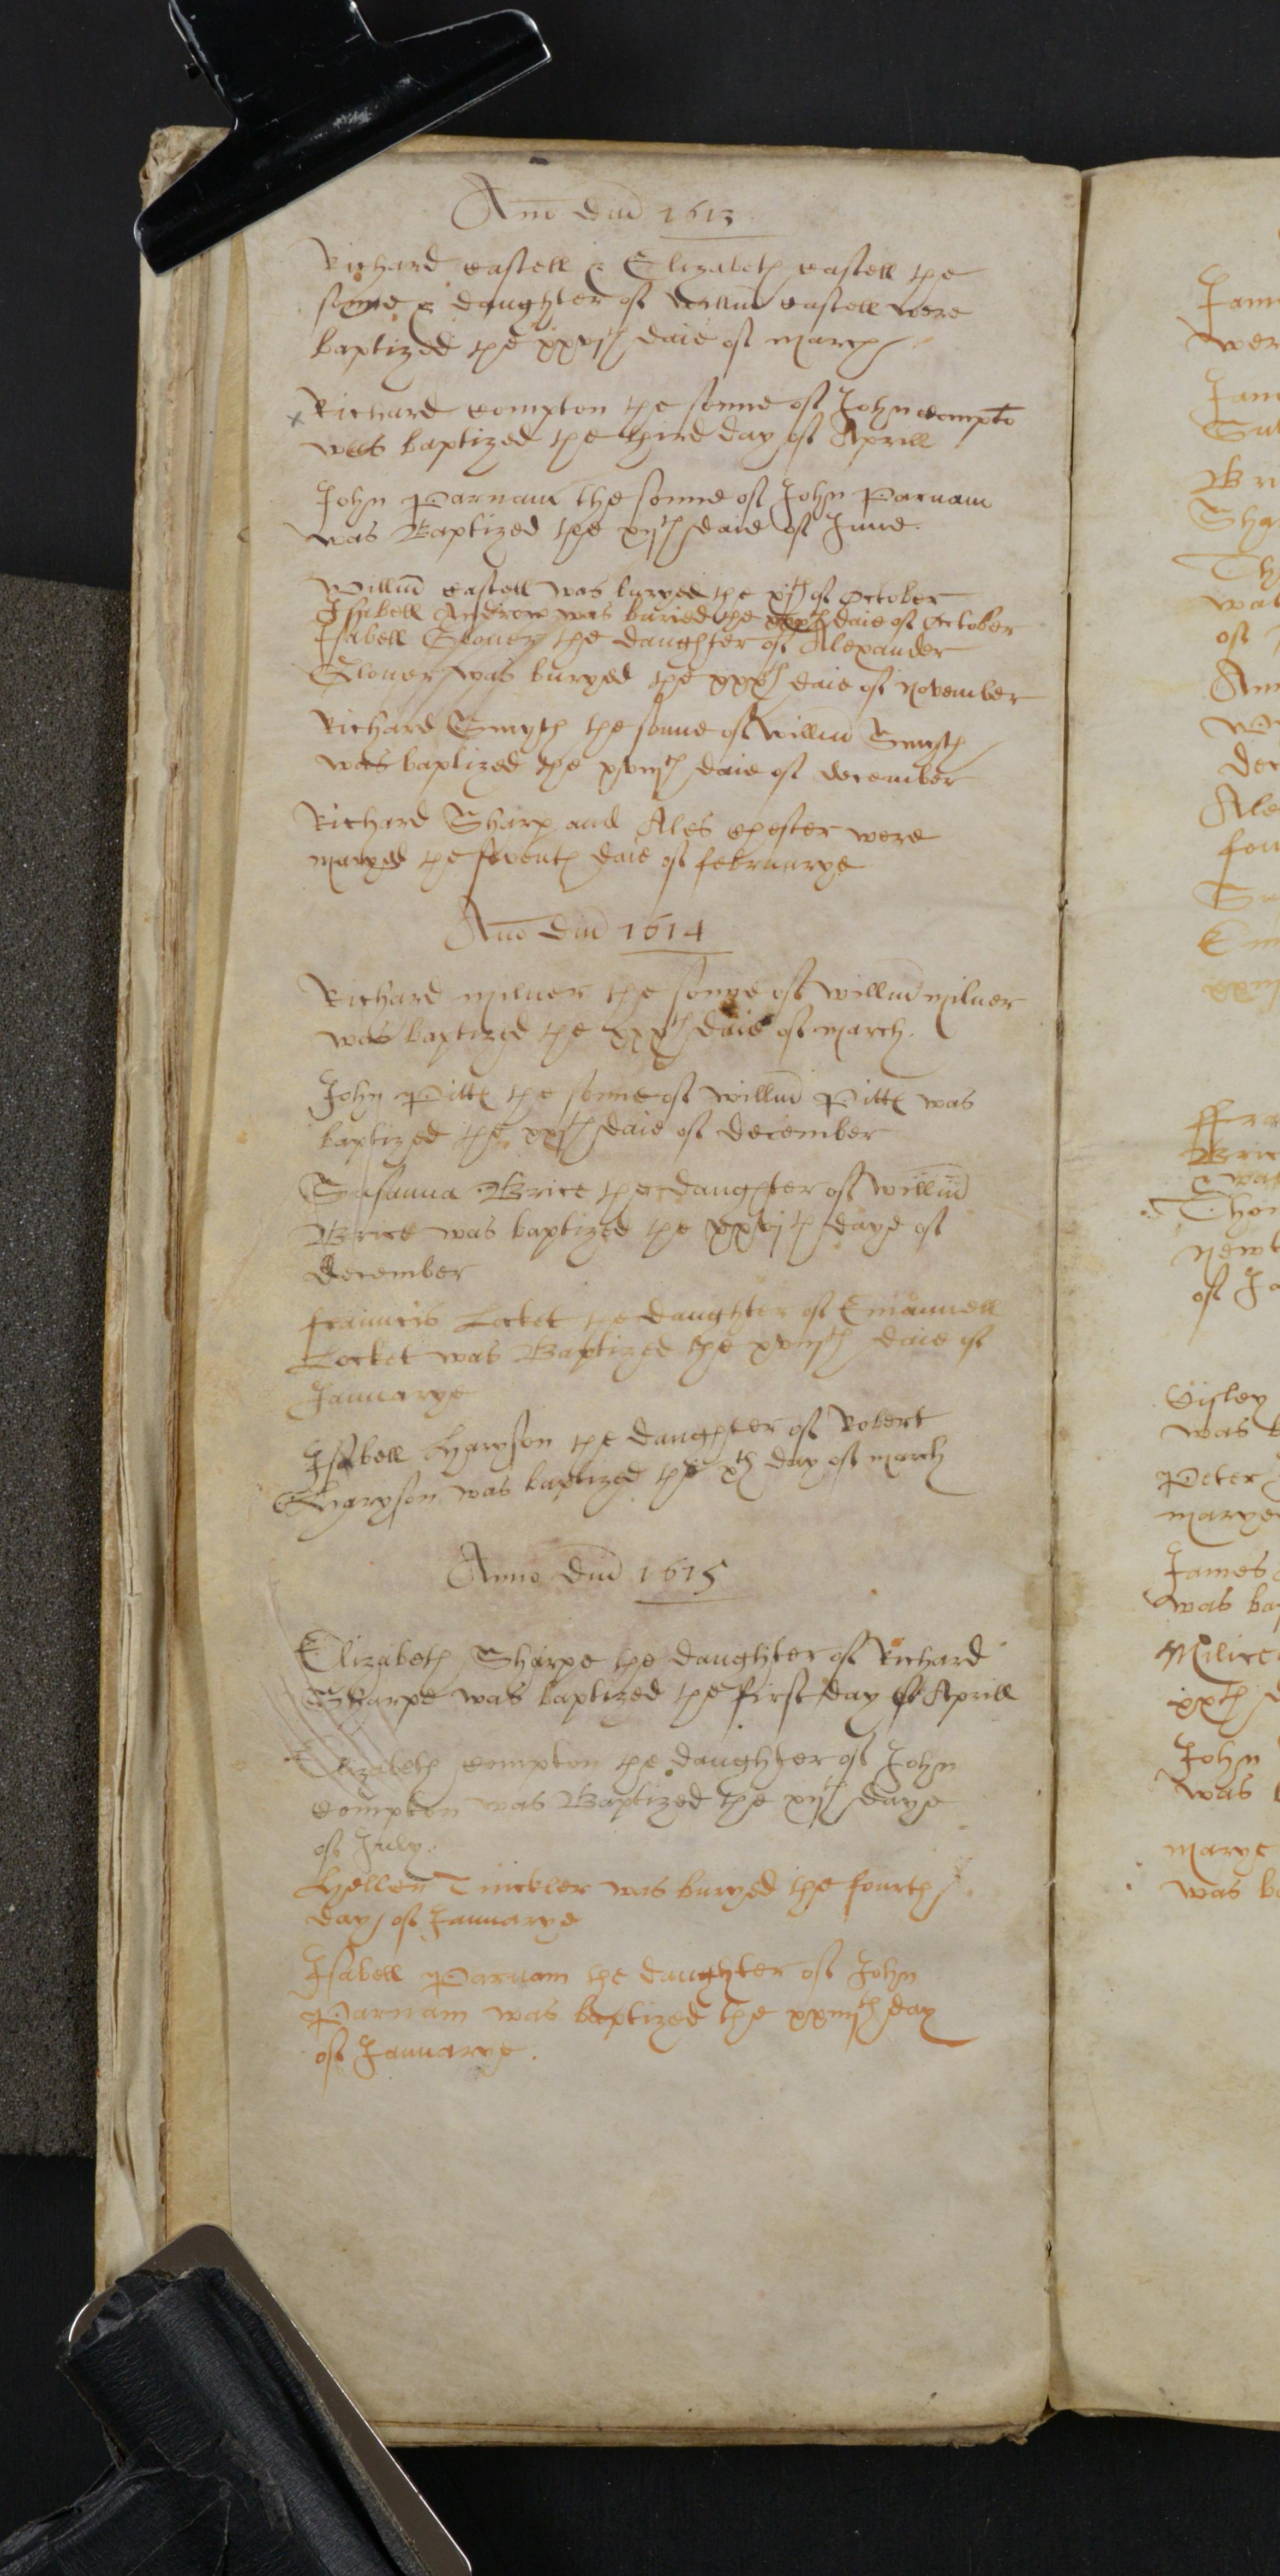 Ano dni 1613
Richard Castell & Elizabeth Castell the
sonne & daughter of Willm Castell were
baptized the xxvjth daie of march
x Richard Compton the sonne of John Compto
was baptized the third day of Aprill
John Parnam the sonne of John Parnam
was Baptized the xijth daie of June.
Willm Castell was buryed the xjth of October
Isabell Androw was buried the daie of October
Isabell Glover the daughter of Alexander
Glover was buryed the xxxth daie of November
Richard Smyth the sonne of Willm Smyth
was baptized the xviijth daie of december
Richard Sharp and Ales Chester were
maryed the seventh daie of februarye
Ano dni 1614
Richard Milner the sonne of Willm Milner
was baptized the xxxth daie of March.
John Pitts the sonne of Willm Pitts was
baptized the xxjth daie of december
Susanna Brice the daughter of Willm
Brice was baptized the xxvjth daye of
december
frauncis Locket the daughter of Emanuell
Locket was Baptized the xviijth daie of
Januarye
Isabell Haryson the daughter of Robert
Haryson was baptized the xth day of march
Anno dni 1615
Elizabeth Sharpe the daughter of Richard
Sharpe was baptized the first day of Aprill
Elizabeth Compton the daughter of John
Compton was Baptized the xijth daye
of July.
Hellen Tinckler was buryed the fourth
day of Januarye
Isabell Parnam the daughter of John
Parnam was baptized the xxiiijth day
of Januarye.
James
was ba
Peter
marye
John
was
marye
was b